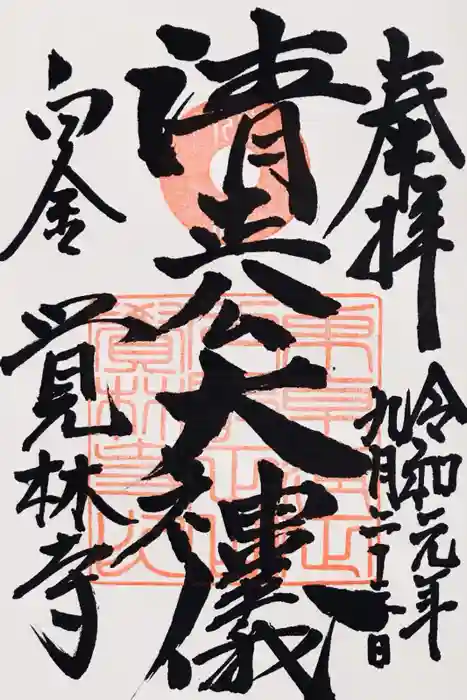 奉拝
令和元年
九月二十五日
清正公大神儀
白金
覚林寺